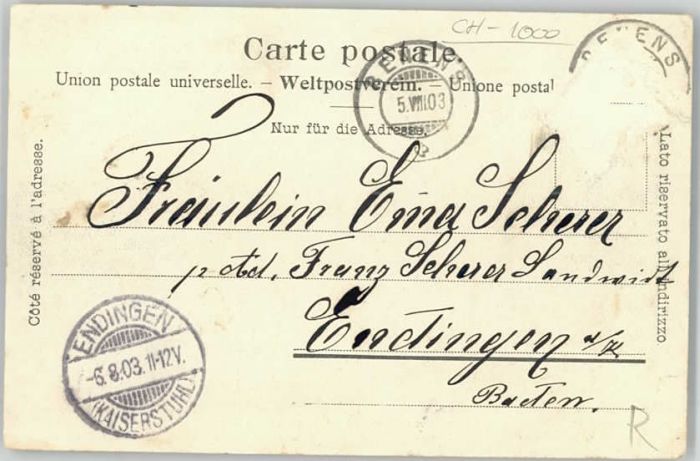 CH - 1000
Carte postale.
Union postale universelle. – Weltpostverein. – Unione postal
Nur für die Adresse.
RENENS
5.VIII.03
RENENS
Côté réservé à l'adresse.
Lato riservato all'indirizzo
Fräulein Emma Scherer
p. Ad. Franz Scherer Landwirt
Endingen a/K
Baden.
ENDINGEN
-6.8.03.11-12V.
(KAISERSTUHL)
R